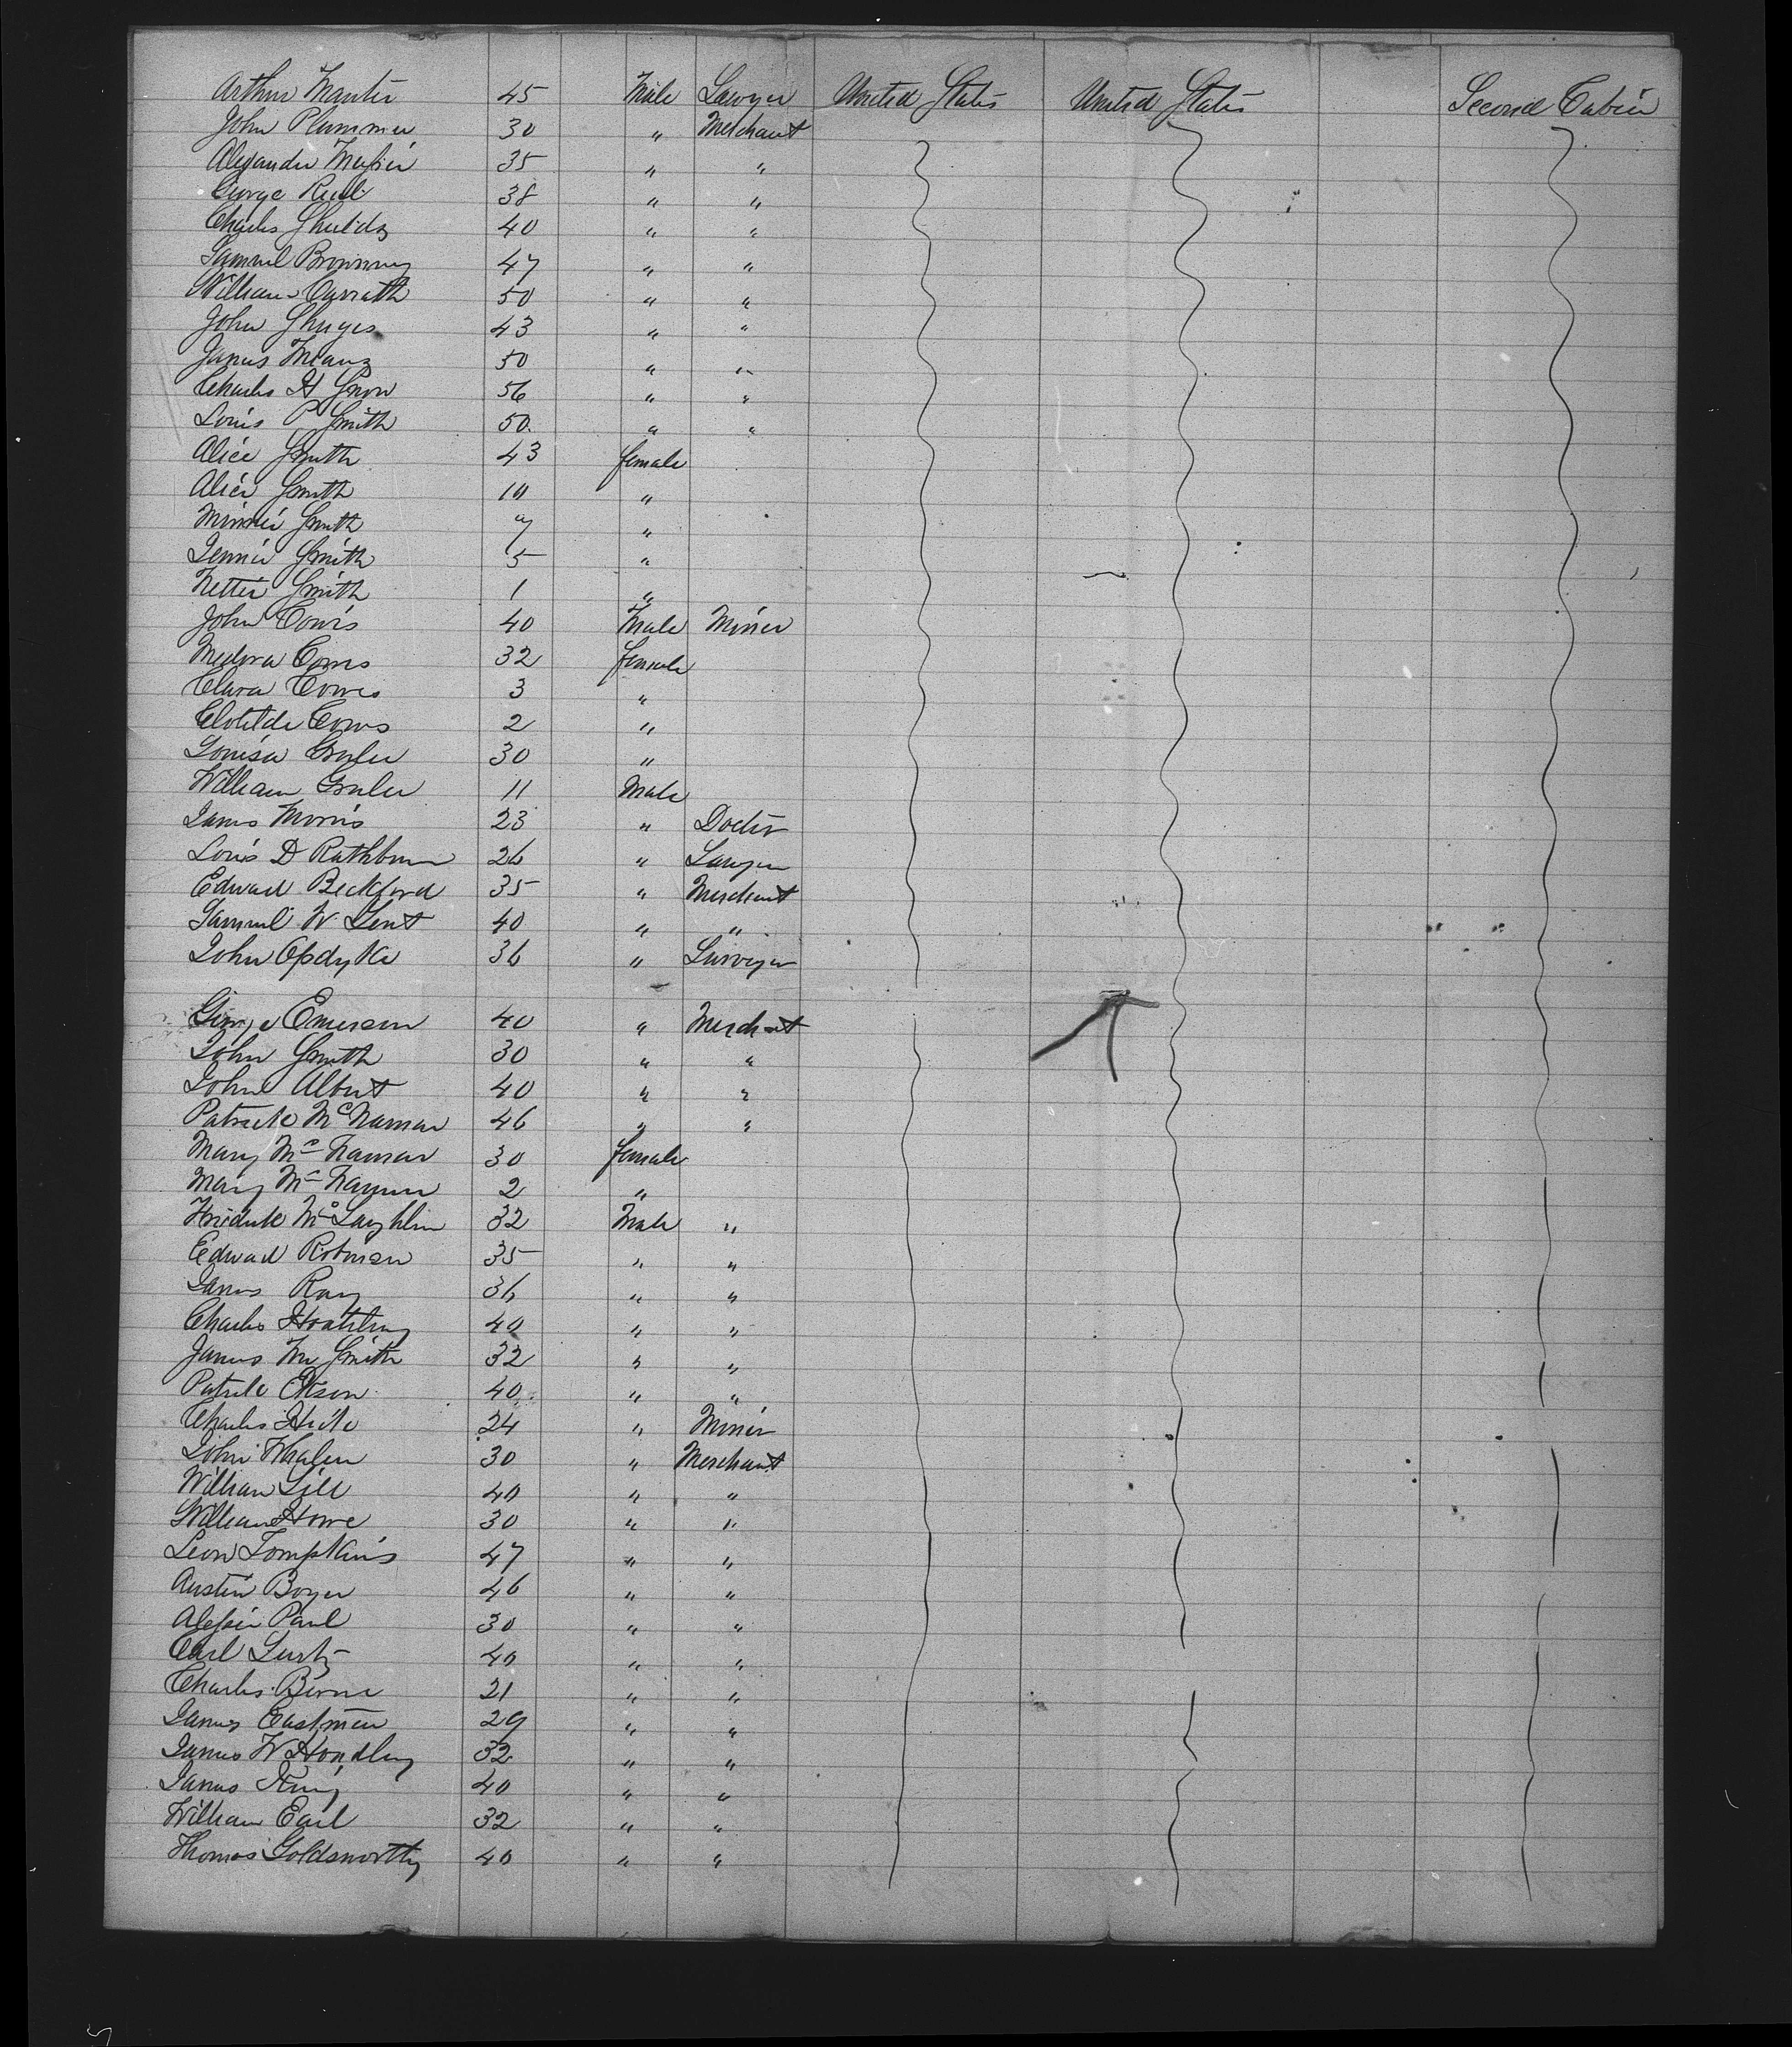 Arthur Manter 45 Male Lawyer United States United States Second Cabin
John Plummer 30 " Merchant
Alexander 35 " "
George Reed 38 " "
Charles Shields 40 " "
Samuel Browning 47 " "
William 50 " "
John 43 " "
James Means 50 " "
Charles H Snow 56 " "
Louis P Smith 50. " "
Alice Smith 43 female
Alice Smith 10 "
Minnie Smith 7 "
Jennie Smith 5 "
Nettie Smith 1 "
John 40 Male Miner
Medora 32 female
Clara 3 "
Clotilde 2 "
Louisa 30 "
William 11 Male
James Morris 23 " Doctor
Louis D Rathbun 26 " Lawyer
Edward Beckford 35 " Merchant
Samuel W Gent 40 " "
John Opdyke 36 " Surveyor
George Emerson 40 " Merchant
John Smith 30 " "
John Albert 40 " "
Patrick McNamar 46 " "
Mary McNamar 30 female
Mary McNamar 2 "
Fredrick McLaughlin 32 Male "
Edward Robinson 35 " "
James Ray 36 " "
Charles 40 " "
James M Smith 32 " "
Patrick 40. " "
Charles 24 " Miner
John Whalen 30 " Merchant
William Lill 40 " "
William Howe 30 " "
Leon Tompkins 47 " "
Austin Boyer 46 " "
Paul 30 " "
Carl 40 " "
Charles Birne 21 " "
James Eastman 29 " "
James W 32 " "
James King 40 " "
William Earl 32 " "
Thomas Goldsworthy 40 " "